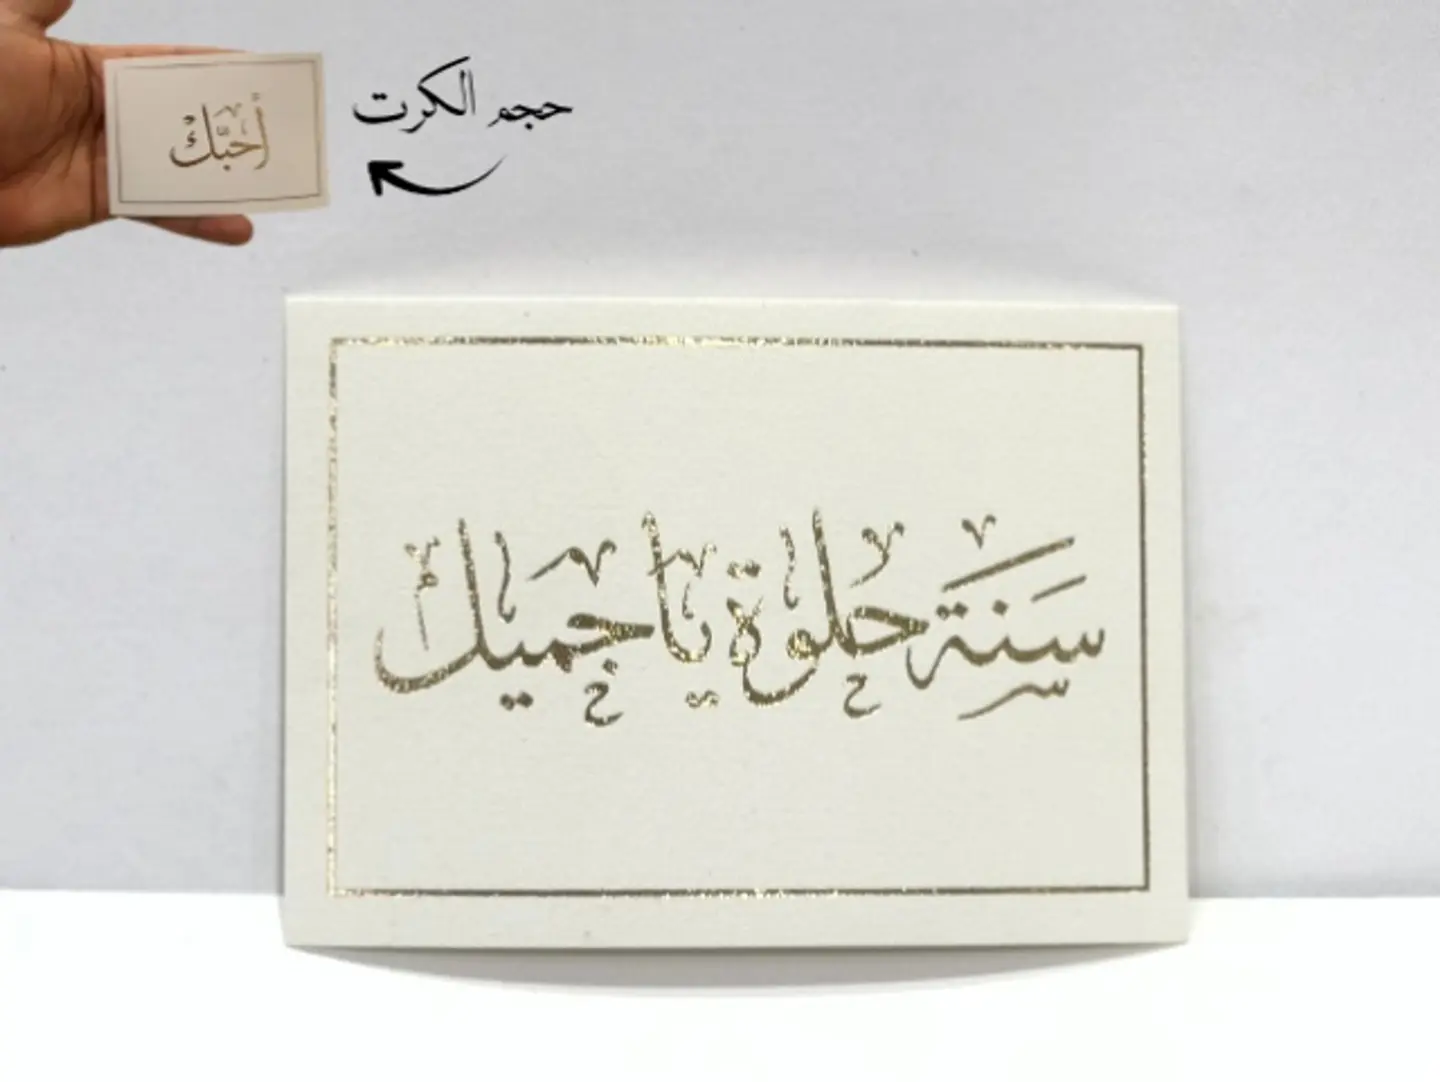 حجم الكرت
أحبّك
سنة حلوة يا جميل